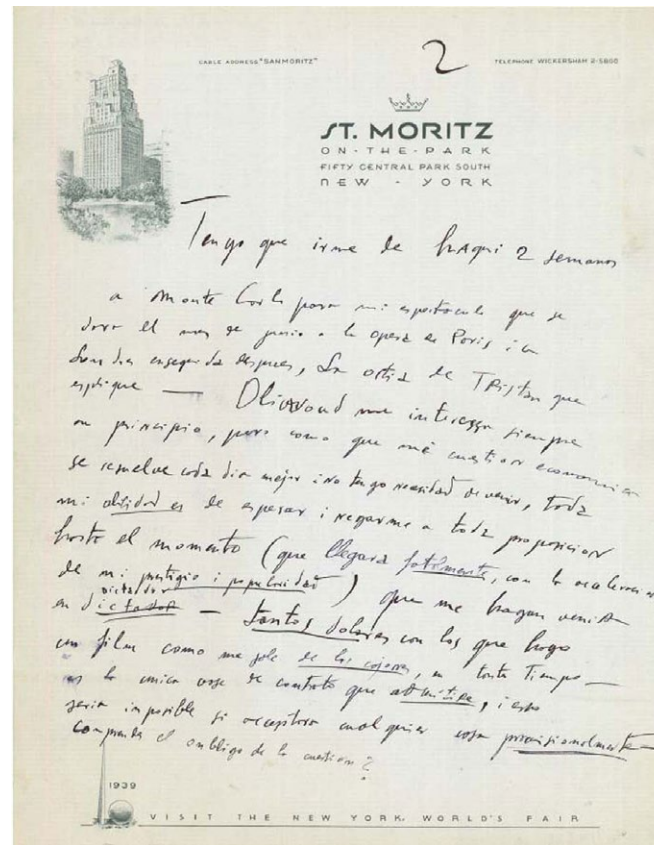 2
CABLE ADDRESS "SANMORITZ"
TELEPHONE WICKERSHAM 2-5800
ST. MORITZ
ON-THE-PARK
FIFTY CENTRAL PARK SOUTH
NEW - YORK
Tengo que irme de haqui 2 semanas
a Monte Carlo para mi espectaculo que se
dara el mes de junio a la opera de Paris i en
Londres enseguida despues, que
esplique — me interesa siempre
en principio, pero como que mi cuestion economica
se resuelve cada dia mejor i no tengo necesidad de venir, toda
mi abtidud es de esperar i negarme a toda proposicion
hasta el momento (que llegara fatalmente, con la aceleracion
de mi prestigio i popularidad) que me hagan venir
dictador
en dictador — tantos dolares con los que hago
un film como me sale de los cojones, en tanto tiempo —
es la unica cose de contrato que abmitire, i esto
seria imposible si aceptara cualquier cosa provisionalmente —
comprendes el ombligo de la cuestion?
1939
VISIT THE NEW YORK WORLD'S FAIR